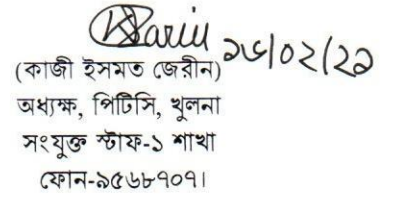 ১৬/০২/২১
(কাজী ইসমত জেরীন)
অধ্যক্ষ, পিটিসি, খুলনা
সংযুক্ত স্টাফ-১ শাখা
ফোন-৯৫৬৮৭০৭।